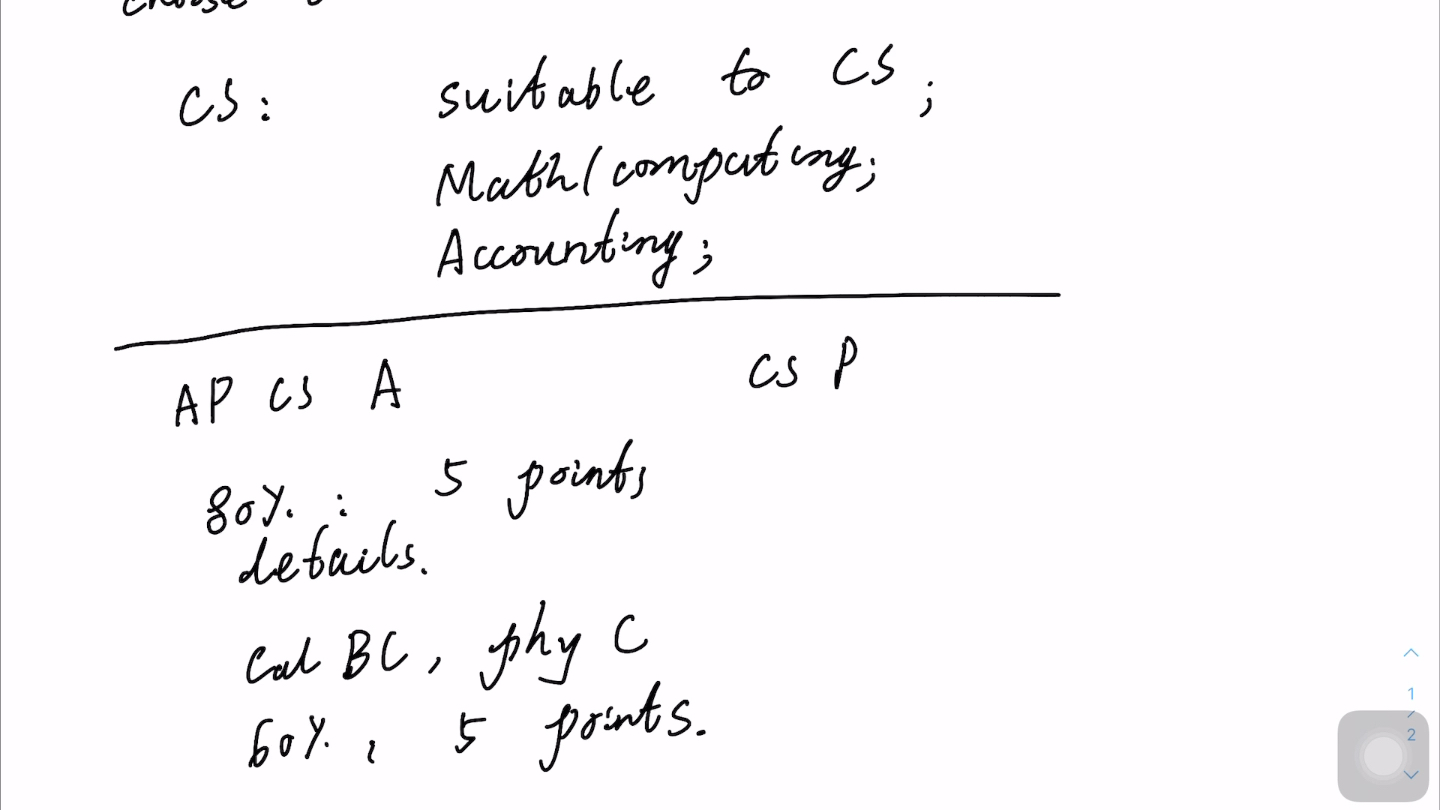 choose
CS: suitable to CS;
Math/computing;
Accounting;
AP CS A CS P
80%: 5 points
details.
Cal BC, phy C
60%, 5 points.
1
/
2